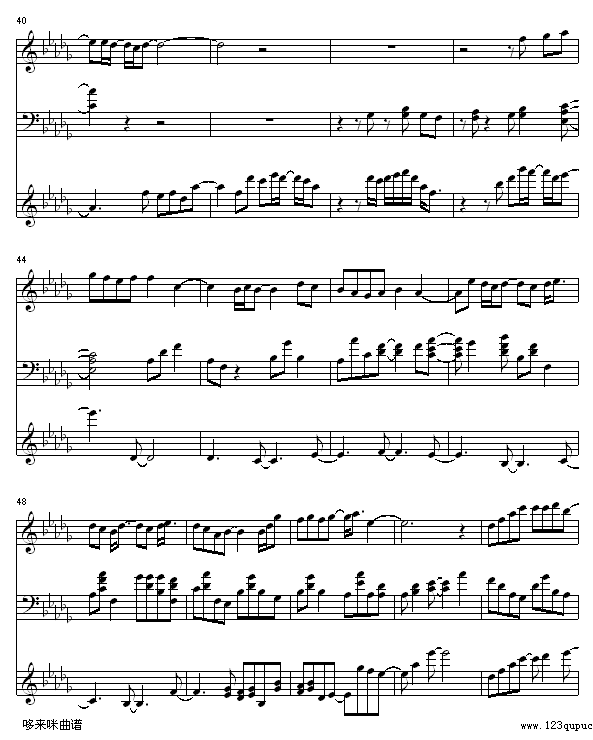 40
44
48
哆来咪曲谱
www.123qupuc